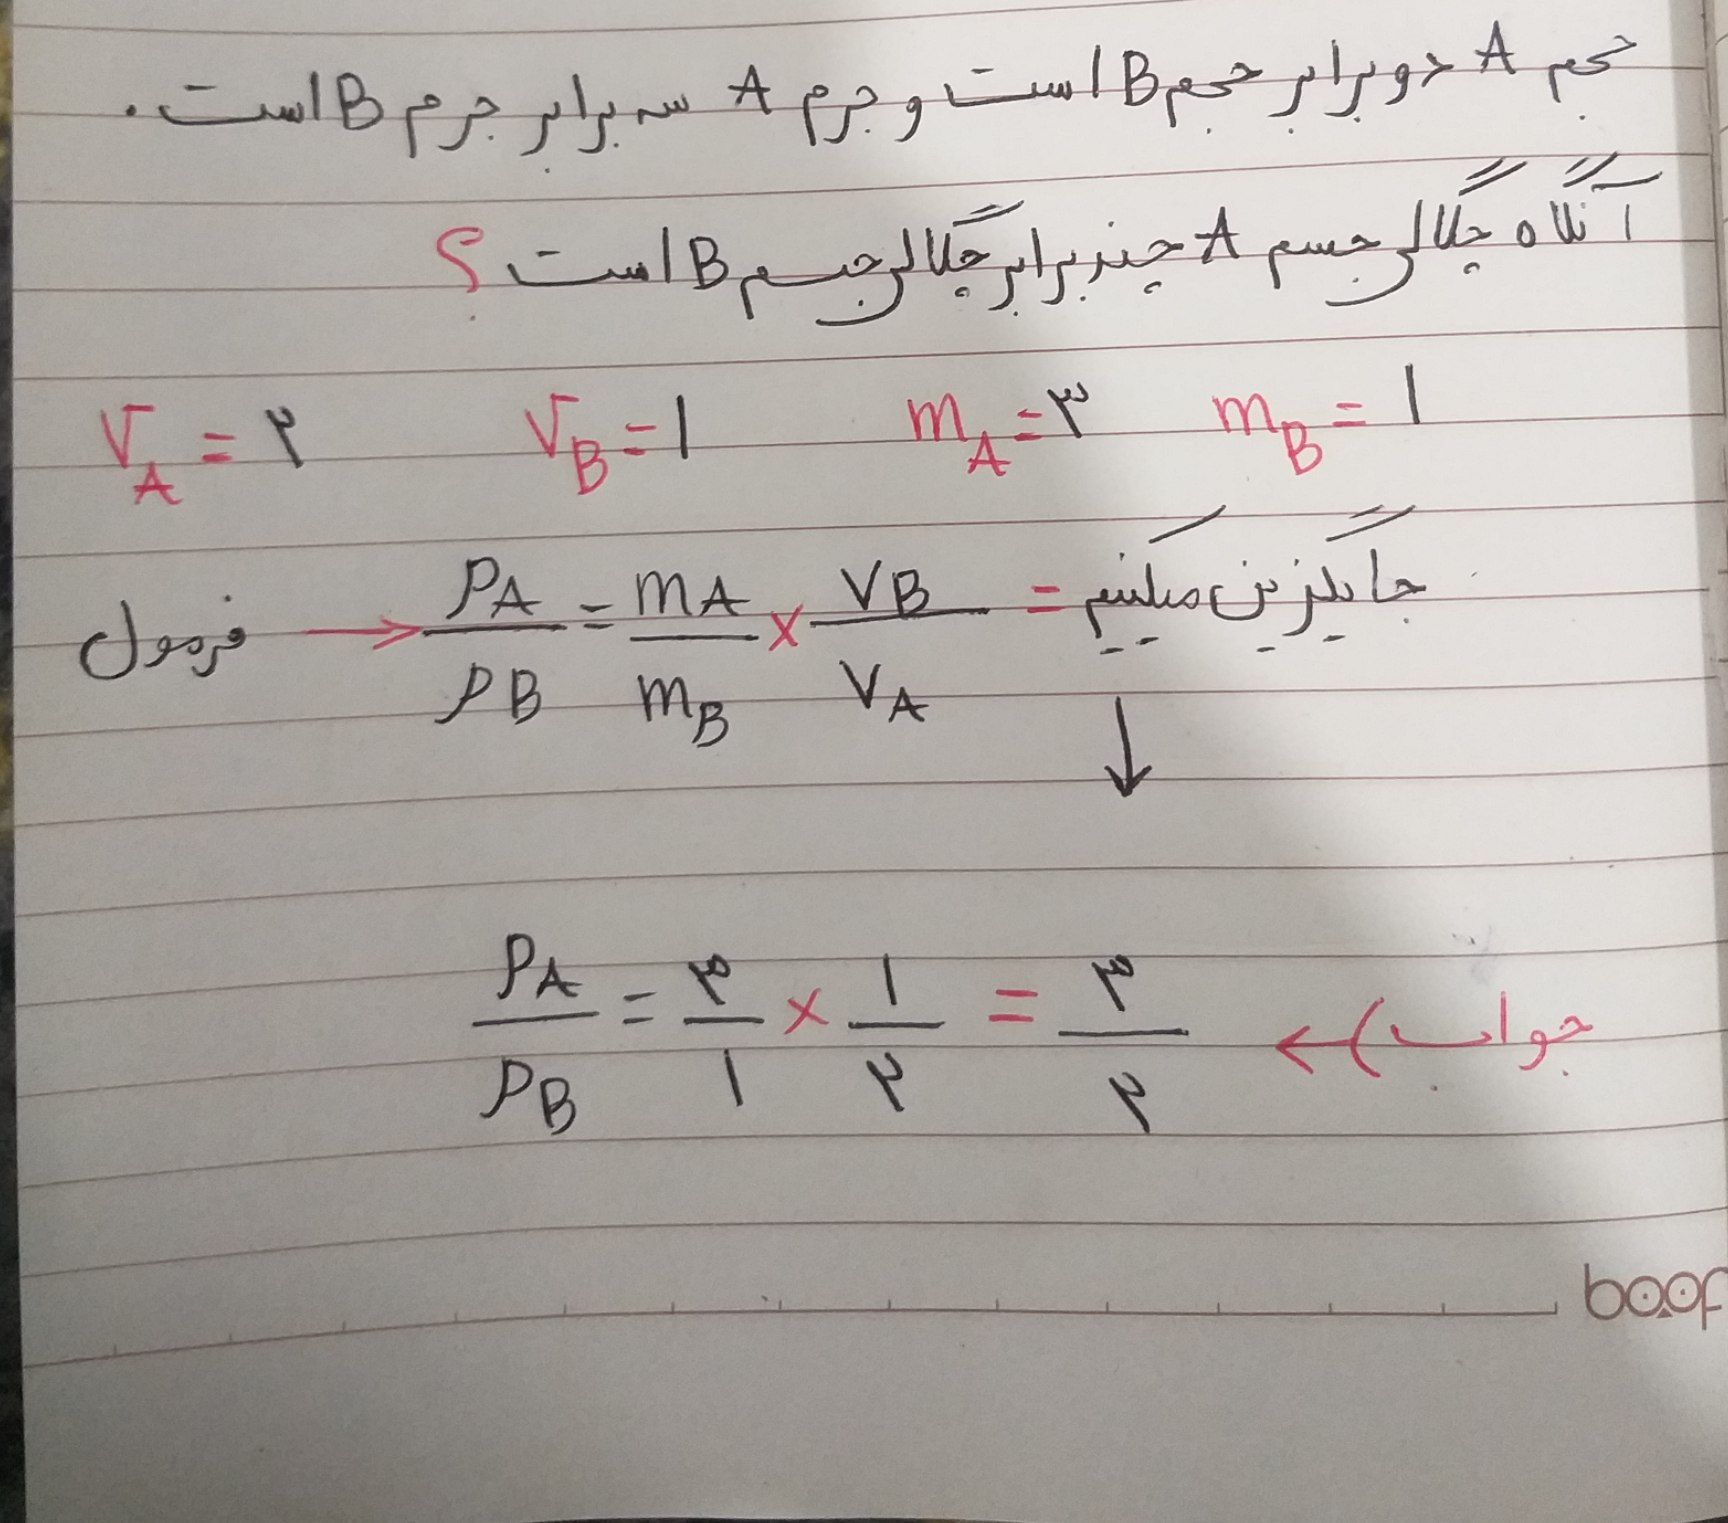 حجم A دو برابر حجم B است و جرم A سه برابر جرم B است.
آنگاه چگالی جسم A چند برابر چگالی جسم B است؟
V_A = ۲ V_B = ۱ m_A = ۳ m_B = ۱
فرمول → ρA/ρB = mA/mB × VB/VA = جایگزین میکنیم
↓
ρA/ρB = ۳/۱ × ۱/۲ = ۳/۲ ← (جواب